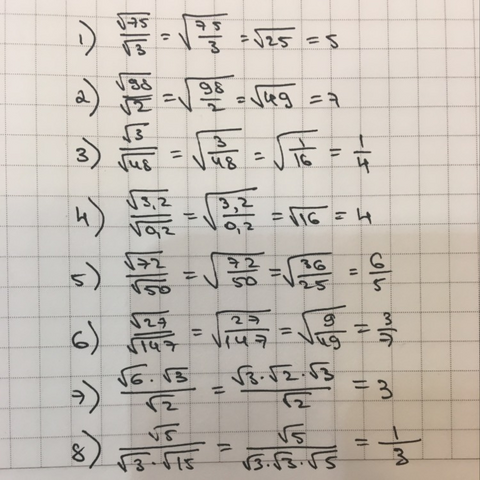 1) √75/√3 = √(75/3) = √25 = 5
2) √98/√2 = √(98/2) = √49 = 7
3) √3/√48 = √(3/48) = √(1/16) = 1/4
4) √3,2/√0,2 = √(3,2/0,2) = √16 = 4
5) √72/√50 = √(72/50) = √(36/25) = 6/5
6) √27/√147 = √(27/147) = √(9/49) = 3/7
7) (√6 · √3)/√2 = (√3 · √2 · √3)/√2 = 3
8) √5/(√3 · √15) = √5/(√3 · √3 · √5) = 1/3